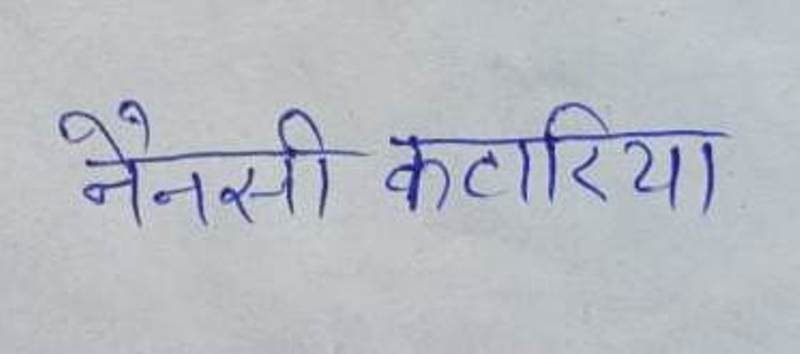 नैनसी कटारिया